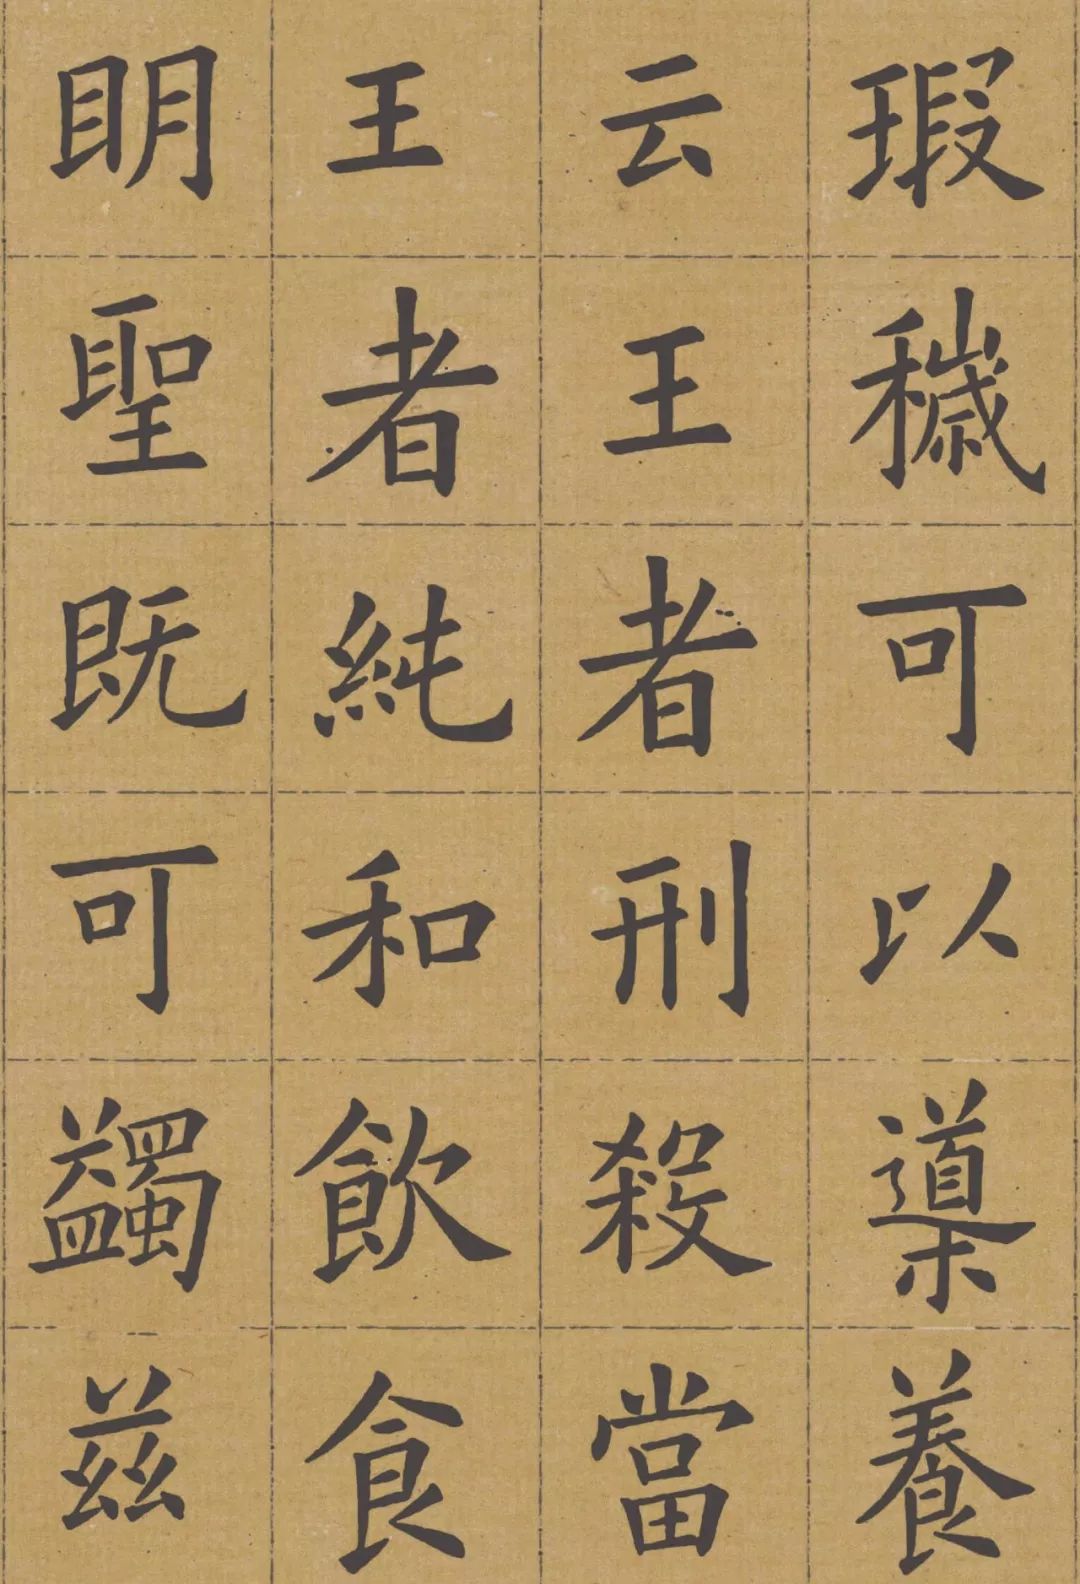 瑕穢可以導養
云王者刑殺當
王者純和飲食
眀聖既可蠲茲